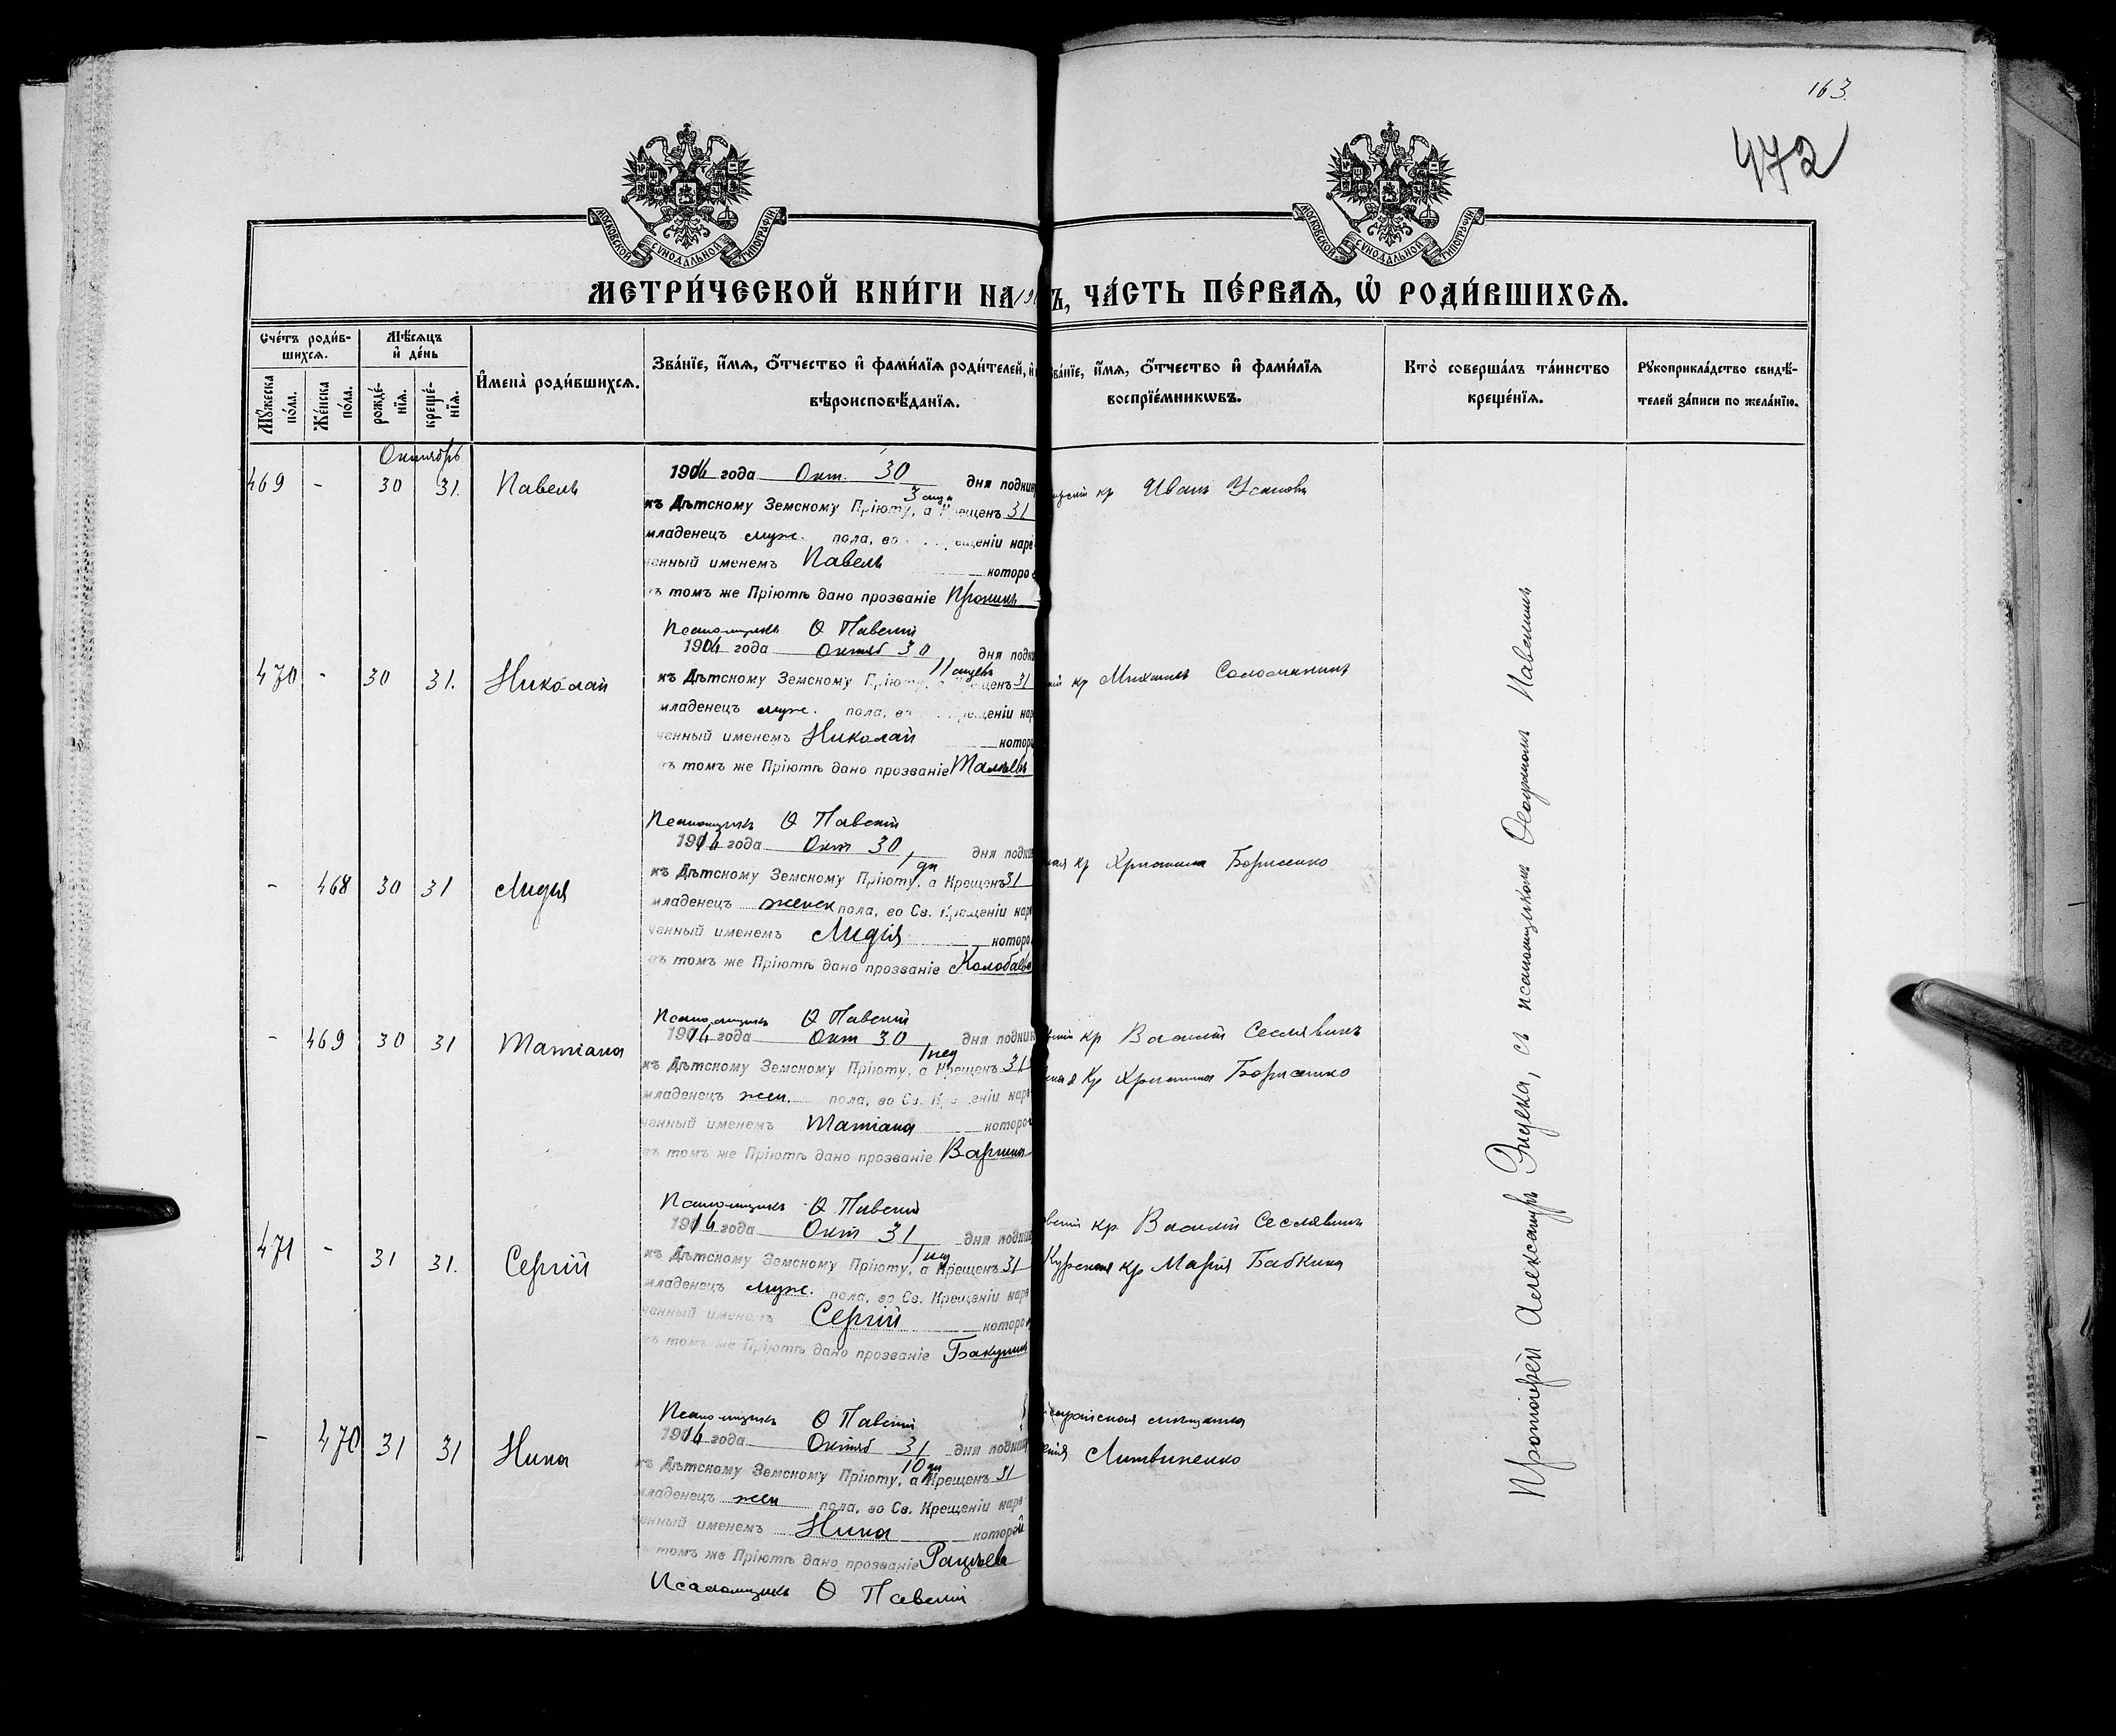 163.
472
МОСКОВСКОЙ СѴНОДАЛЬНОЙ ТИПОГРАФІИ
МОСКОВСКОЙ СѴНОДАЛЬНОЙ ТИПОГРАФІИ
МЕТРИ́ЧЕСКОЙ КНИ́ГИ НА 19 Ъ, ЧА́СТЬ ПЕ́РВАѦ, Ѡ҆ РОДИ́ВШИХСѦ.
Сче́тъ роди́в-
шихсѧ.
Мѣ́сѧцъ
и҆ де́нь
Мꙋ́жеска по́ла.
Же́нска по́ла.
рожде́-
нїѧ.
креще́-
нїѧ.
И҆мена̀ роди́вшихсѧ.
Зва́нїе, и҆́мѧ, ѻ҆́тчество и҆ фами́лїѧ роди́телей, и҆
вѣроисповѣ́данїѧ.
ва́нїе, и҆́мѧ, ѻ҆́тчество и҆ фами́лїѧ
воспрїе́мникѡвъ.
Кто̀ соверша́лъ та́инство
креще́нїѧ.
Рꙋкоприкла́дство свидѣ́-
телей за́писи по жела́нїю.
Октябрь
469 - 30 31. Павелъ
1916 года Окт. 30 дня подки
къ Дѣтскому Земскому Пріюту, а Крещенъ 31
младенец муж. пола, во ещеніи наре
ченный именемъ Павелъ которо
въ томъ же Пріютѣ дано прозваніе Пронинъ
Псаломщикъ Ѳ Павскій
кр Иванъ Усановъ
470 - 30 31. Николай
1916 года Октяб 30 дня подки
11 мцевъ
къ Дѣтскому Земскому Пріюту, а Крещенъ 31
младенецъ муж. пола, во Крещеніи нар
ченный именемъ Николай которо
въ томъ же Пріютѣ дано прозваніе
Псаломщикъ Ѳ Павскій
кр Михаилъ Соломинъ
- 468 30 31 Лидія
1916 года Окт 30 дня подки
1 дн
къ Дѣтскому Земскому Пріюту, а Крещенъ 31
младенецъ женск пола, во Св. Крещеніи наре
ченный именемъ Лидія которо
въ томъ же Пріютѣ дано прозваніе Колобаева
Псаломщикъ Ѳ Павскій
кр Христина Борисенко
- 469 30 31 Татіана
1916 года Окт 30 дня подки
1 нед
къ Дѣтскому Земскому Пріюту, а Крещенъ 31
младенецъ жен. пола, во Св. Крещеніи наре
ченный именемъ Татіана которо
въ томъ же Пріютѣ дано прозваніе Варшина
Псаломщикъ Ѳ Павскій
кр Василій Сеслявинъ
кр Христина Борисенко
471 - 31 31. Сергій
1916 года Окт 31 дня подки
къ Дѣтскому Земскому Пріюту, а Крещенъ 31
младенецъ муж. пола, во Св. Крещеніи наре
ченный именемъ Сергій которо
въ томъ же Пріютѣ дано прозваніе Бакунинъ
Псаломщикъ Ѳ Павскій
кр Василій Сеслявинъ
Курская кр Марія Бабкина
- 470 31 31 Нина
1916 года Октяб 31 дня подки
10 дн
къ Дѣтскому Земскому Пріюту, а Крещенъ 31
младенецъ жен пола, во Св. Крещеніи наре
ченный именемъ Нина которой
въ томъ же Пріютѣ дано прозваніе
Псаломщикъ Ѳ Павскій
мѣщанка
Литвиненко
Протоіерей Александръ Эндека, съ псаломщикомъ Ѳеодоромъ Павскимъ